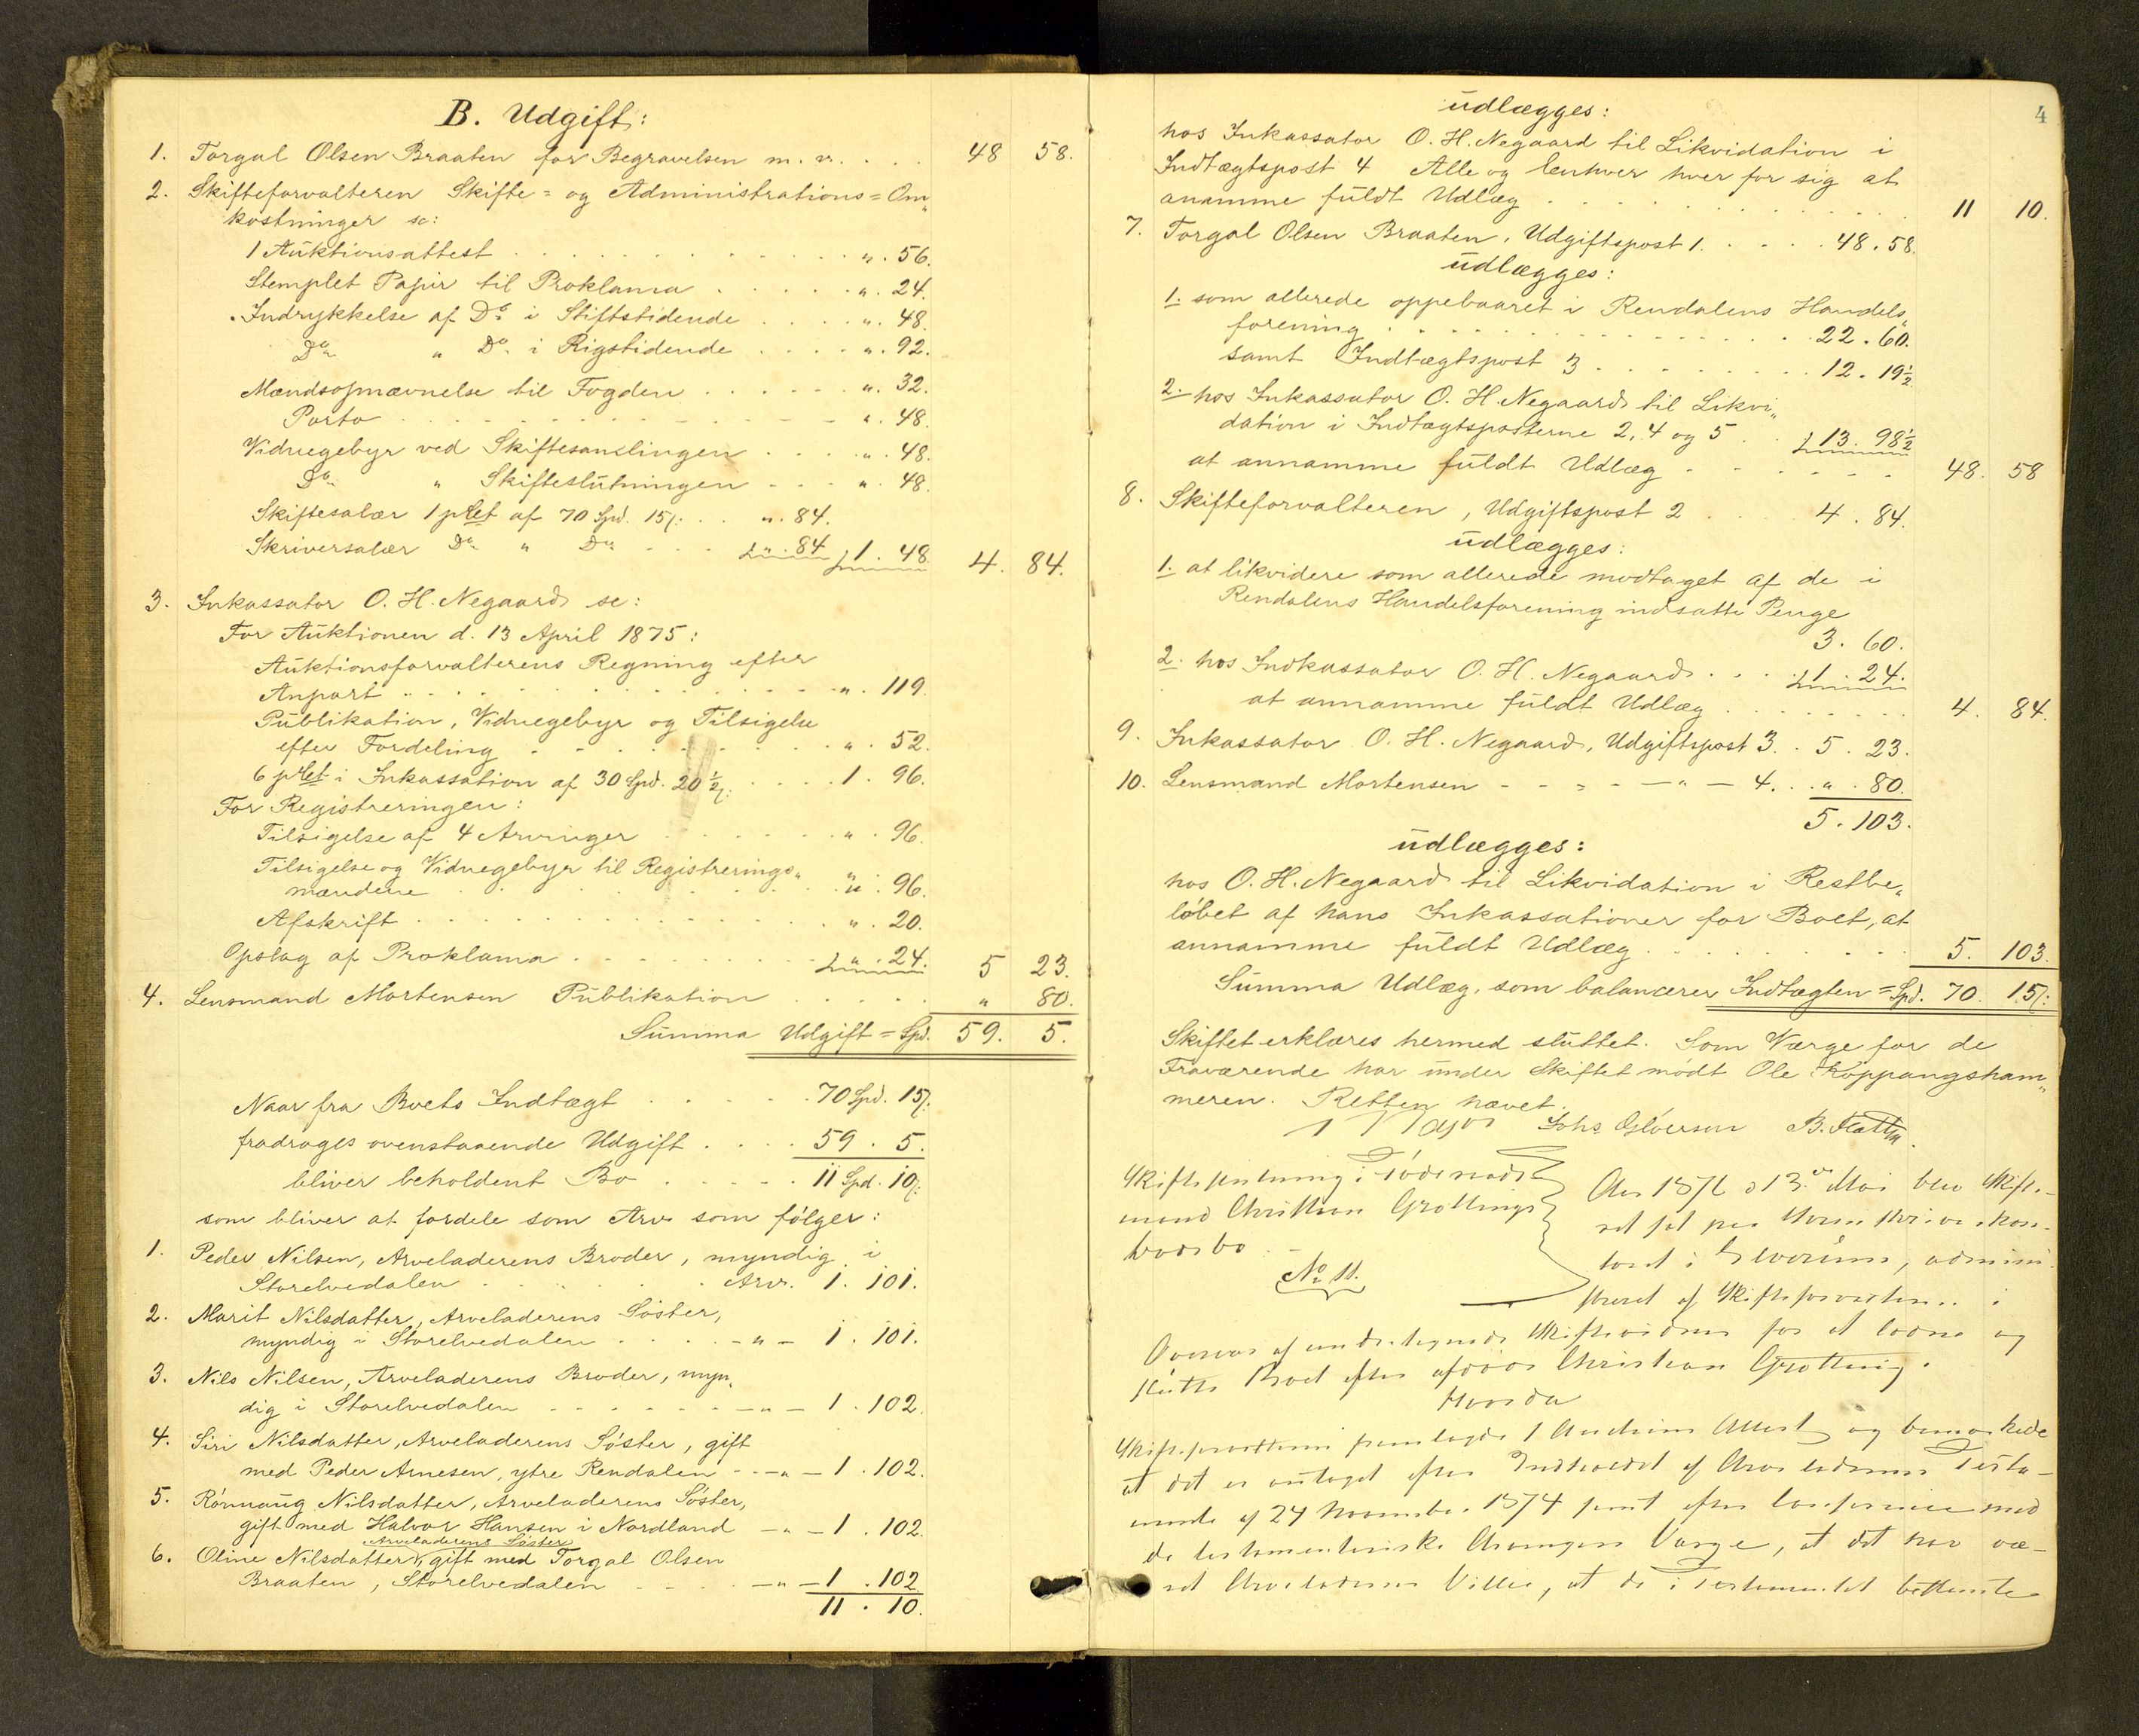 B. Udgift:
1. Torgal Olsen Braaten for Begravelsen m. v. . . . 48 58.
2. Skifteforvalteren Skifte= og Administrations=Om„
kostninger sc:
1 Auktionsattest . . . „. 56.
Stemplet Papir til Proklama . . . „. 24.
Indrykkelse af Do. i Stiftstidende . . . „. 48.
Do. „ Do. i Rigstidende . . . „. 92.
Mændsopnævnelse til Fogden . . . „. 32.
Porto . . . „. 48.
Vidnegebyr ved Skiftesamlingen . . . „. 48.
Do. „ Skifteslutningen . . . „. 48.
Skiftesalær 1 pCt af 70 Spd. 15/: . . „. 84.
Skriversalær Do. „ Do. . . . „. 84 1. 48. 4. 84.
3. Inkassator O. H. Negaard sc:
For Auktionen d. 13 April 1875:
Auktionsforvalterens Regning efter
Anpart . . . „. 119.
Publikation, Vidnegebyr og Tilsigelse
efter Fordeling . . . „. 52.
6 pCt i Inkassation af 30 Spd. 20½/: . . . 1. 96.
For Registreringen:
Tilsigelse af 4 Arvinger . . . „. 96.
Tilsigelse og Vidnegebyr til Registrerings„
mændene . . . „. 96.
Afskrift . . . „. 20.
Opslag af Proklama . . . „. 24. 5 23.
4. Lensmand Mortensen Publikation . . . „ 80.
Summa Udgift = Spd. 59. 5.
Naar fra Boets Indtægt . . . 70 Spd. 15/:
fradrages ovenstaaende Udgift . . . 59. 5.
bliver beholdent Bo . . . 11 Spd. 10/:
som bliver at fordele som Arv som følger:
1. Peder Nilsen, Arveladerens Broder, myndig i
Storelvedalen . . . Arv. 1. 101.
2. Marit Nilsdatter, Arveladerens Søster,
myndig i Storelvedalen . . . - „ - 1. 101.
3. Nils Nilsen, Arveladerens Broder, myn„
dig i Storelvedalen - - - - „ - 1. 102.
4. Siri Nilsdatter, Arveladerens Søster, gift
med Peder Arnesen, ytre Rendalen - - „ - 1. 102.
5. Rønnaug Nilsdatter, Arveladerens Søster,
gift med Halvor Hansen i Nordland - „ - 1. 102.
Arveladerens Søster
6. Oline Nilsdatter, gift med Torgal Olsen
Braaten, Storelvedalen - - - „ - 1. 102
11. 10.
4
udlægges:
hos Inkassator O. H. Negaard til Likvidation i
Indtægtspost 4 Alle og enhver hver for sig at
anamme fuldt Udlæg . . . 11 10.
7. Torgal Olsen Braaten, Udgiftspost 1. . . . 48. 58.
udlægges:
1. som allerede oppebaaret i Rendalens Handels„
forening . . . 22. 60.
samt Indtægtspost 3 . . . 12. 19½
2. hos Inkassator O. H. Negaard til Likvi„
dation i Indtægtsposterne 2, 4 og 5 . . 13. 98½
at annamme fuldt Udlæg . . . 48. 58
8. Skifteforvalteren, Udgiftspost 2 . . . 4. 84.
udlægges:
1. at likvidere som allerede modtaget af de i
Rendalens Handelsforening indsatte Penge
3. 60.
2. hos Indkassator O. H. Negaard . . . 1. 24.
at annamme fuldt Udlæg . . . 4. 84.
9. Inkassator O. H. Negaard, Udgiftspost 3. . 5. 23.
10. Lensmand Mortensen - - - „ - 4. . . „. 80.
5. 103.
udlægges:
hos O. H. Negaard til Likvidation i Restbe„
løbet af hans Inkassationer for Boet, at
annamme fuldt Udlæg . . . 5. 103.
Summa Udlæg, som balancerer Indtægten = Spd. 70. 15/:
Skiftet erklæres hermed sluttet. Som Værge for de
Fraværende har under Skiftet mødt Ole Koppangsham„
meren. Retten hævet.
Johs Gløersen
Skifteslutning iFøderaads-
mand Christian Grøttings
Dødsbo. -
No 11.
Aar 1876 d 13de Mai blev Skifte-
ret sat paa Sorenskriverkon-
toret i Elverum, admini-
streret af Skifteforvalteren i
Overvær af undertegnede Skiftevidner for at ordne og
slutte Boet efter afdøde Christian Grøtting.
Hvorda
Skifteforvalteren fremlagde 1 Auctions Attest og bemærkede
at det er antaget efter Indholdet af Arveladerens Testa-
mente af 24 November 1874 samt efter Conference med
de testamentariske Arvingers Værge, at det har væ-
ret Arveladerens Villie, at de i Testamentet bestemte